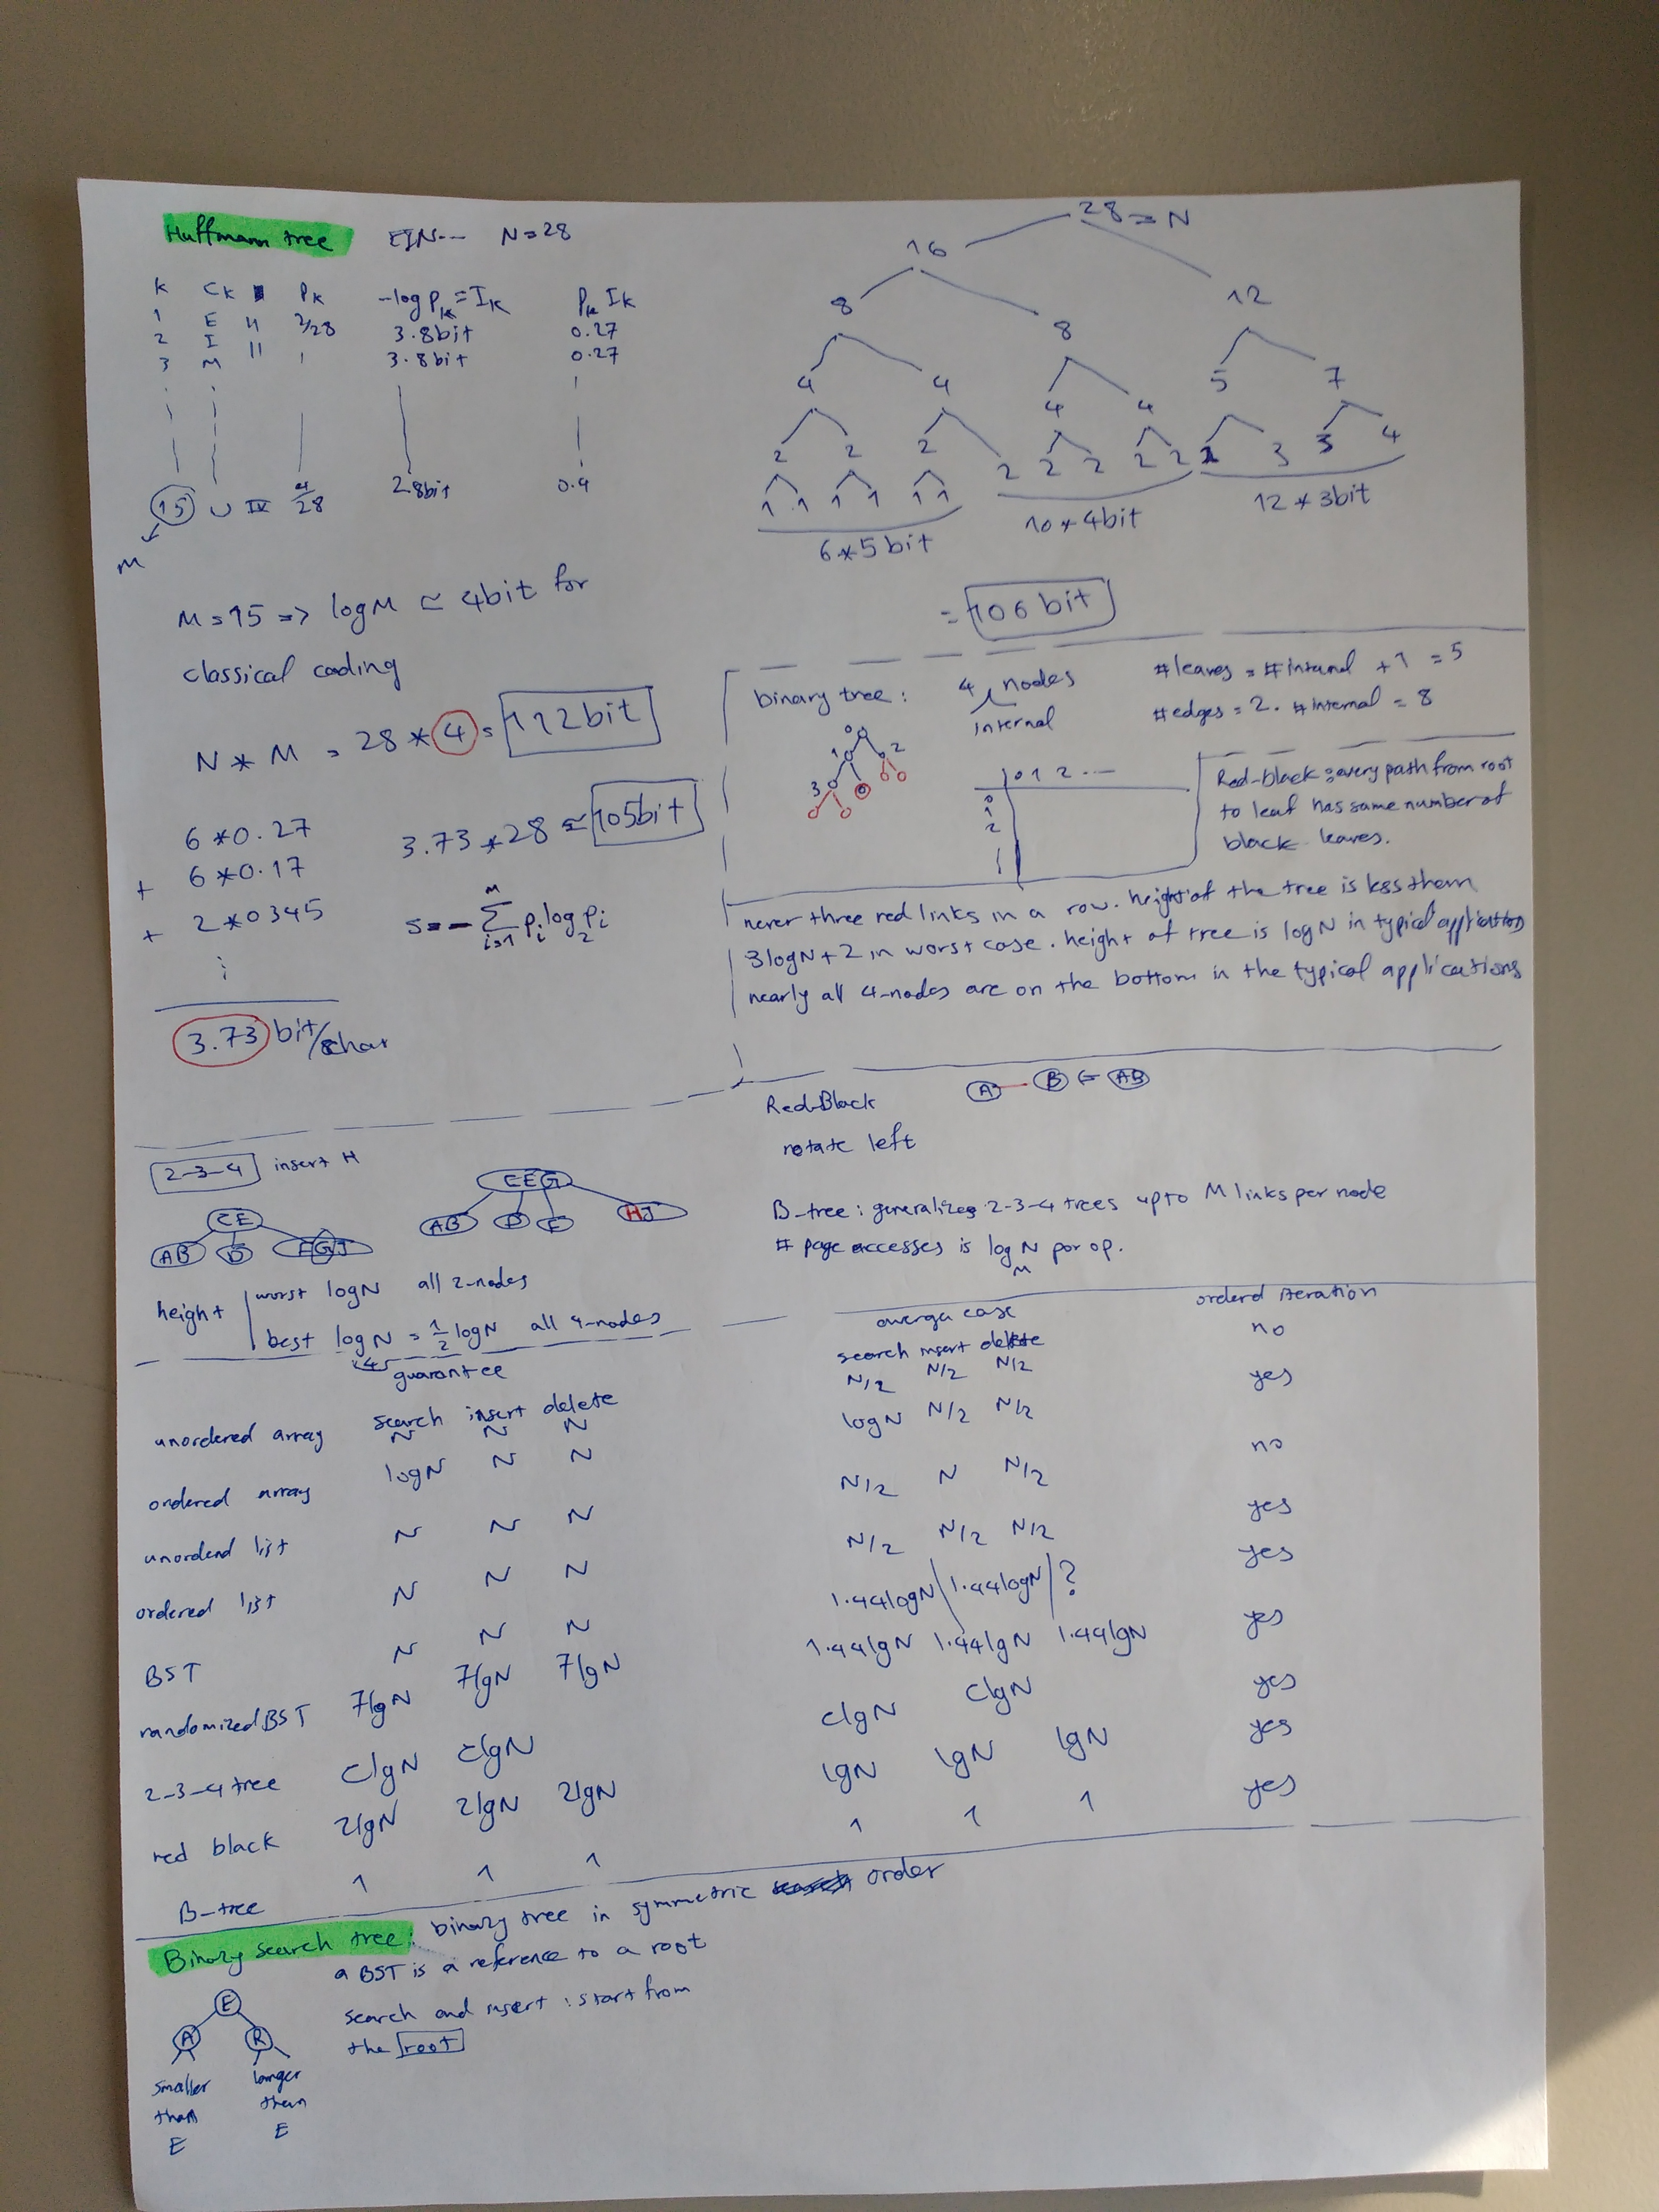 Huffmann tree EIN--- N=28
K CK PK -log PK=IK PK IK
1 E II 2/28 3.8bit 0.27
2 I II | 3.8bit 0.27
3 M
15 U IV 4/28 2.8bit 0.4
M
M=15 => logM ≃ 4bit for
classical coding
N*M = 28*4 = 112bit
6*0.27
+ 6*0.17
+ 2*0345
3.73 bit/char
3.73*28 ≃ 105bit
S=-∑ i=1 M pi log2 pi
28=N
16
12
8
8
5
7
4 4 4 4
2 2 2 2 2 2 2 2 2 3 3 4
1 1 1 1 1 1
6*5bit 10*4bit 12*3bit
= 106 bit
binary tree: 4 nodes
internal
#leaves = #internal +1 = 5
#edges = 2. #internal = 8
0
1 2
3
| 0 1 2 ---
0
1
2
Red-black: every path from root
to leaf has same number of
black leaves.
never three red links in a row. height of the tree is less them
3logN+2 in worst case. height of tree is logN in typical applications
nearly all 4-nodes are on the bottom in the typical applications
Red-Black A B = AB
rotate left
B-tree: generalizes 2-3-4 trees up to M links per node
# page accesses is logM N per op.
2-3-4 insert H
CE
AB D FGJ
CEG
AB D F HJ
height worst logN all 2-nodes
best log4 N = 1/2 logN all 4-nodes
guarantee averge case orderd iteration
search insert delete search insert delete
unordered array N N N N/2 N/2 N/2 no
ordered array logN N N logN N/2 N/2 yes
unordend list N N N N/2 N N/2 no
ordered list N N N N/2 N/2 N/2 yes
BST N N N 1.44logN 1.44logN ? yes
randomized BST 7lgN 7lgN 7lgN 1.44lgN 1.44lgN 1.44lgN yes
2-3-4 tree clgN clgN clgN clgN yes
red black 2lgN 2lgN 2lgN lgN lgN lgN yes
B-tree 1 1 1 1 1 1 yes
Binary search tree: binary tree in symmetric order
a BST is a reference to a root
search and insert: start from
the root
E
A R
smaller
than
E
larger
then
E